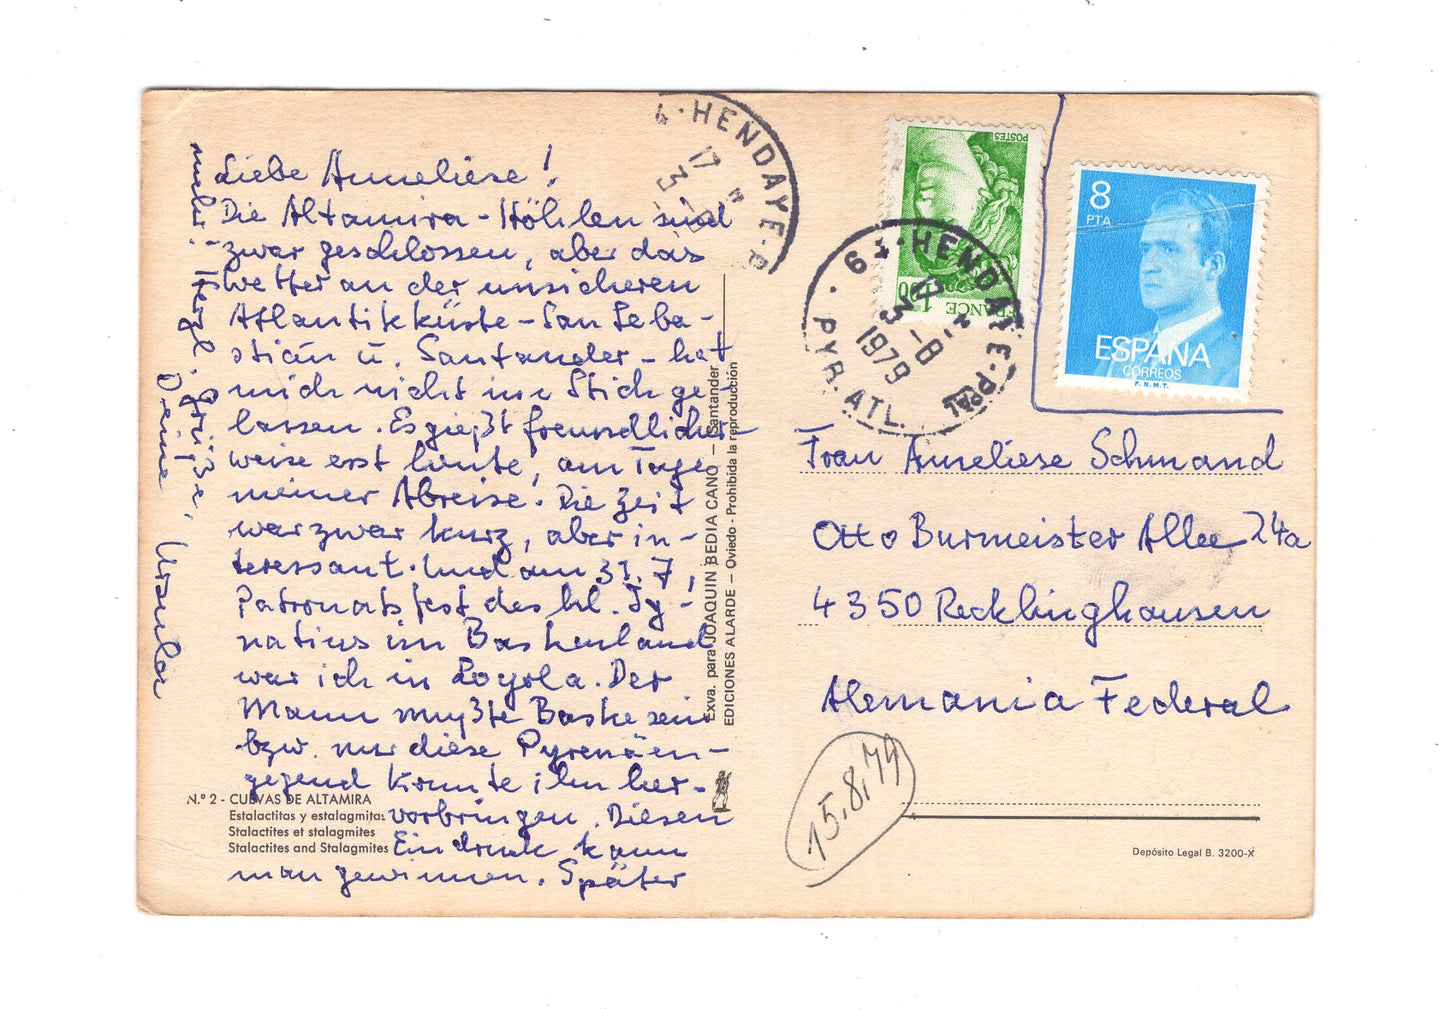 Liebe Anneliese!
Die Altamira-Höhlen sind
zwar geschlossen, aber das
Wetter an der unsicheren
Atlantikküste-San Seba-
stián u. Santander-hat
mich nicht im Stich ge-
lassen. Es gießt freundlicher-
weise erst heute, am Tage
meiner Abreise. Die Zeit
war zwar kurz, aber in-
teressant. Und am 31.7,
Patronatsfest des hl. Ig-
natius im Baskenland
war ich in Loyola. Der
Mann mußte Baske sein
bzw. nur diese Pyrenäen-
gegend konnte ihn her-
vorbringen. Diesen
Eindruck kann
man gewinnen. Später
mehr. Herzl. Grüße,
Deine Ursula
N.º 2 - CUEVAS DE ALTAMIRA
Estalactitas y estalagmitas
Stalactites et stalagmites
Stalactites and Stalagmites
Exva. para JOAQUIN BEDIA CANO - Santander
EDICIONES ALARDE - Oviedo - Prohibida la reproducción
HENDAYE-P
17
3
64-HENDAYE-PPAL
3-8
1979
PYR. ATL.
POSTES
1,00
FRANCE
8
PTA
ESPAÑA
CORREOS
F.N.M.T.
Frau Anneliese Schmand
Otto Burmeister Allee 24a
4350 Recklinghausen
Alemania Federal
15.8.79
Depósito Legal B. 3200-X